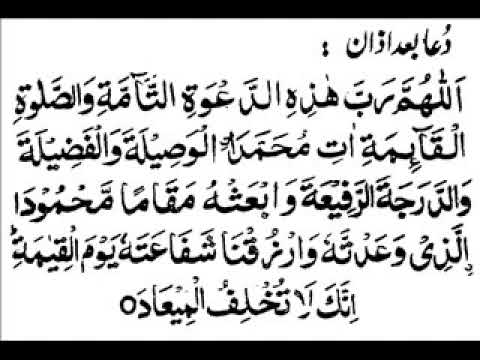 دُعا بعد اذان :
اَللّٰهُمَّ رَبَّ هٰذِهِ الدَّعْوَةِ التَّآمَّةِ وَالصَّلٰوةِ
الْقَآئِمَةِ اٰتِ مُحَمَّدَاِ۟ الْوَصِيْلَةَ وَالْفَضِيْلَةَ
وَالدَّرَجَةَ الرَّفِيْعَةَ وَابْعَثْهُ مَقَامًا مَّحْمُوْدَا
ِ۟الَّذِىْ وَعَدْتَّهٗ وَارْزُقْنَا شَفَاعَتَهٗ يَوْمَ الْقِيٰمَةِ ؕ
اِنَّكَ لَا تُخْلِفُ الْمِيْعَادَ ○